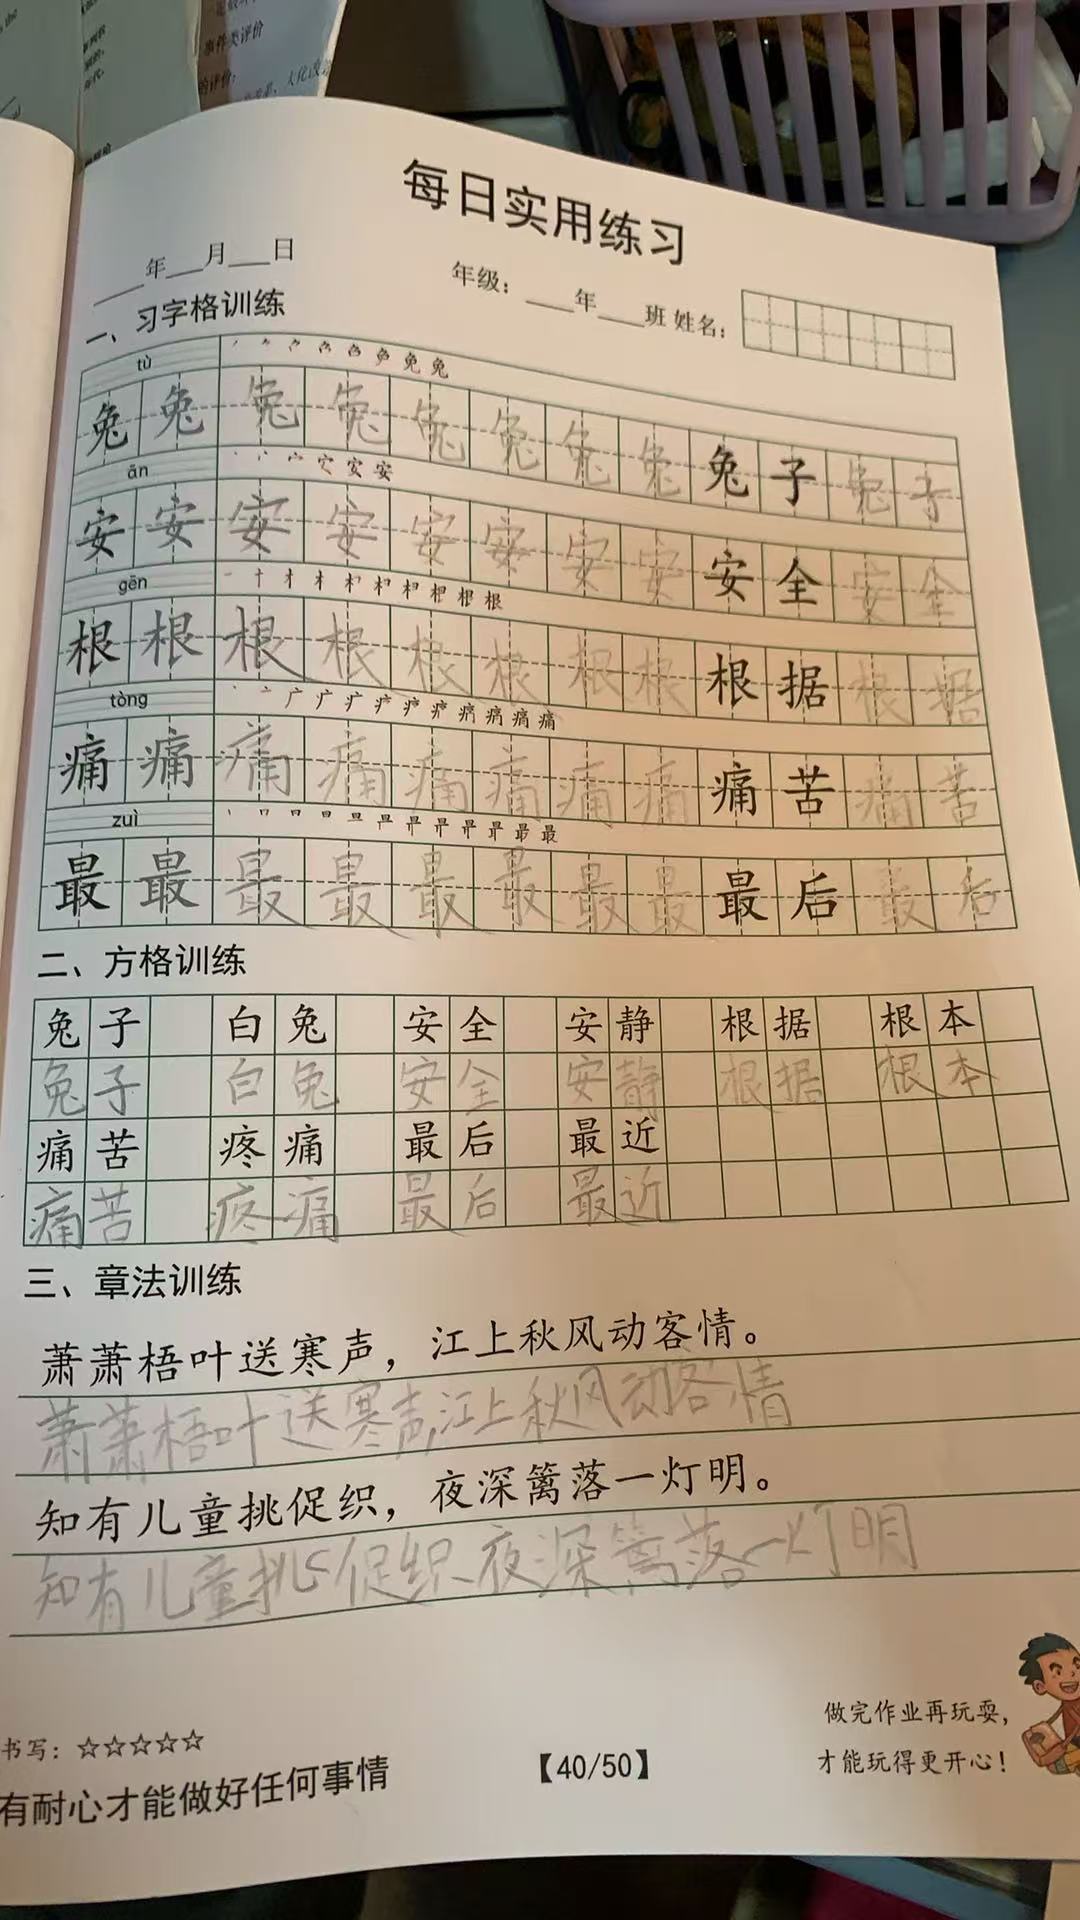 事件类评价
的评价:
每日实用练习
____年___月___日
年级：____年____班 姓名：
一、习字格训练
tù
兔 兔 兔 兔 兔 兔 兔 兔 兔 子 兔 子
ān
安 安 安 安 安 安 安 安 安 全 安 全
gēn
根 根 根 根 根 根 根 根 根 据 根 据
tòng
痛 痛 痛 痛 痛 痛 痛 痛 痛 苦 痛 苦
zuì
最 最 最 最 最 最 最 最 最 后 最 后
二、方格训练
兔子 白兔 安全 安静 根据 根本
兔子 白兔 安全 安静 根据 根本
痛苦 疼痛 最后 最近
痛苦 疼痛 最后 最近
三、章法训练
萧萧梧叶送寒声，江上秋风动客情。
萧萧梧叶送寒声,江上秋风动客情
知有儿童挑促织，夜深篱落一灯明。
知有儿童挑促织夜深篱落一灯明
书写：☆☆☆☆☆
有耐心才能做好任何事情
【40/50】
做完作业再玩耍，
才能玩得更开心！